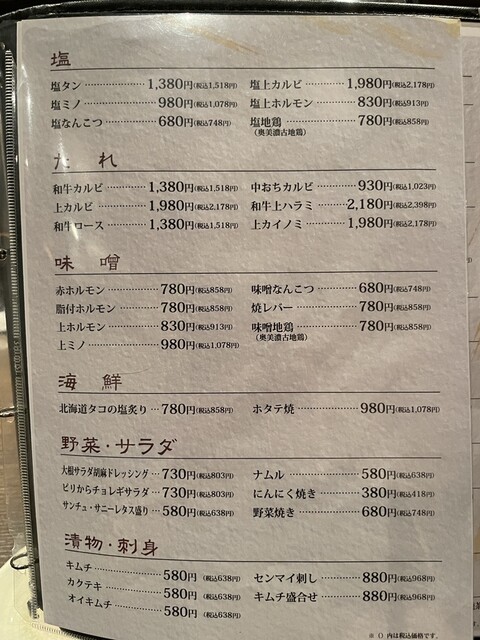 塩
塩タン 1,380円(税込1,518円)
塩ミノ 980円(税込1,078円)
塩なんこつ 680円(税込748円)
塩上カルビ 1,980円(税込2,178円)
塩上ホルモン 830円(税込913円)
塩地鶏 780円(税込858円)
(奥美濃古地鶏)
たれ
和牛カルビ 1,380円(税込1,518円)
上カルビ 1,980円(税込2,178円)
和牛ロース 1,380円(税込1,518円)
中おちカルビ 930円(税込1,023円)
和牛上ハラミ 2,180円(税込2,398円)
上カイノミ 1,980円(税込2,178円)
味噌
赤ホルモン 780円(税込858円)
脂付ホルモン 780円(税込858円)
上ホルモン 830円(税込913円)
上ミノ 980円(税込1,078円)
味噌なんこつ 680円(税込748円)
焼レバー 780円(税込858円)
味噌地鶏 780円(税込858円)
(奥美濃古地鶏)
海鮮
北海道タコの塩炙り 780円(税込858円)
ホタテ焼 980円(税込1,078円)
野菜・サラダ
大根サラダ胡麻ドレッシング 730円(税込803円)
ピリからチョレギサラダ 730円(税込803円)
サンチュ・サニーレタス盛り 580円(税込638円)
ナムル 580円(税込638円)
にんにく焼き 380円(税込418円)
野菜焼き 680円(税込748円)
漬物・刺身
キムチ 580円(税込638円)
カクテキ 580円(税込638円)
オイキムチ 580円(税込638円)
センマイ刺し 880円(税込968円)
キムチ盛合せ 880円(税込968円)
※()内は税込価格です。